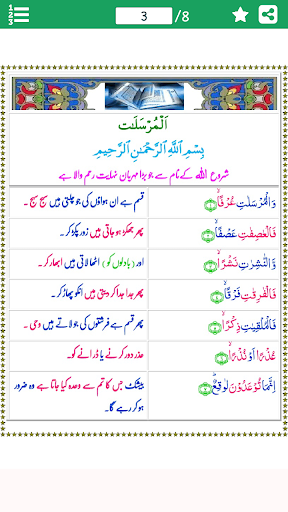 1
2
3
3 /8
اَلْمُرْسَلٰت
بِسْمِ اللّٰهِ الرَّحْمٰنِ الرَّحِيْمِ
شروع اللہ کے نام سے جو بڑا مہربان نہایت رحم والا ہے
وَالْمُرْسَلٰتِ عُرْفًا ۙ﴿۱﴾ قسم ہے ان ہواؤں کی جو چلتی ہیں سچ سچ ۔
فَالْعٰصِفٰتِ عَصْفًا ۙ﴿۲﴾ پھر جھکڑ ہو جاتی ہیں زور پکڑ کر ۔
وَّالنّٰشِرٰتِ نَشْرًا ۙ﴿۳﴾ اور (بادلوں کو) اٹھا لاتی ہیں ابھار کر ۔
فَالْفٰرِقٰتِ فَرْقًا ۙ﴿۴﴾ پھر جدا جدا کر دیتی ہیں انکو پھاڑ کر ۔
فَالْمُلْقِيٰتِ ذِكْرًا ۙ﴿۵﴾ پھر قسم ہے فرشتوں کی جو لاتے ہیں وحی ۔
عُذْرًا اَوْ نُذْرًا ۙ﴿۶﴾ عذر دور کرنے یا ڈرانے کو ۔
اِنَّمَا تُوْعَدُوْنَ لَوَاقِعٌ ؕ﴿۷﴾ بیشک جس کا تم سے وعدہ کیا جاتا ہے وہ ضرور
ہو کر رہے گا ۔